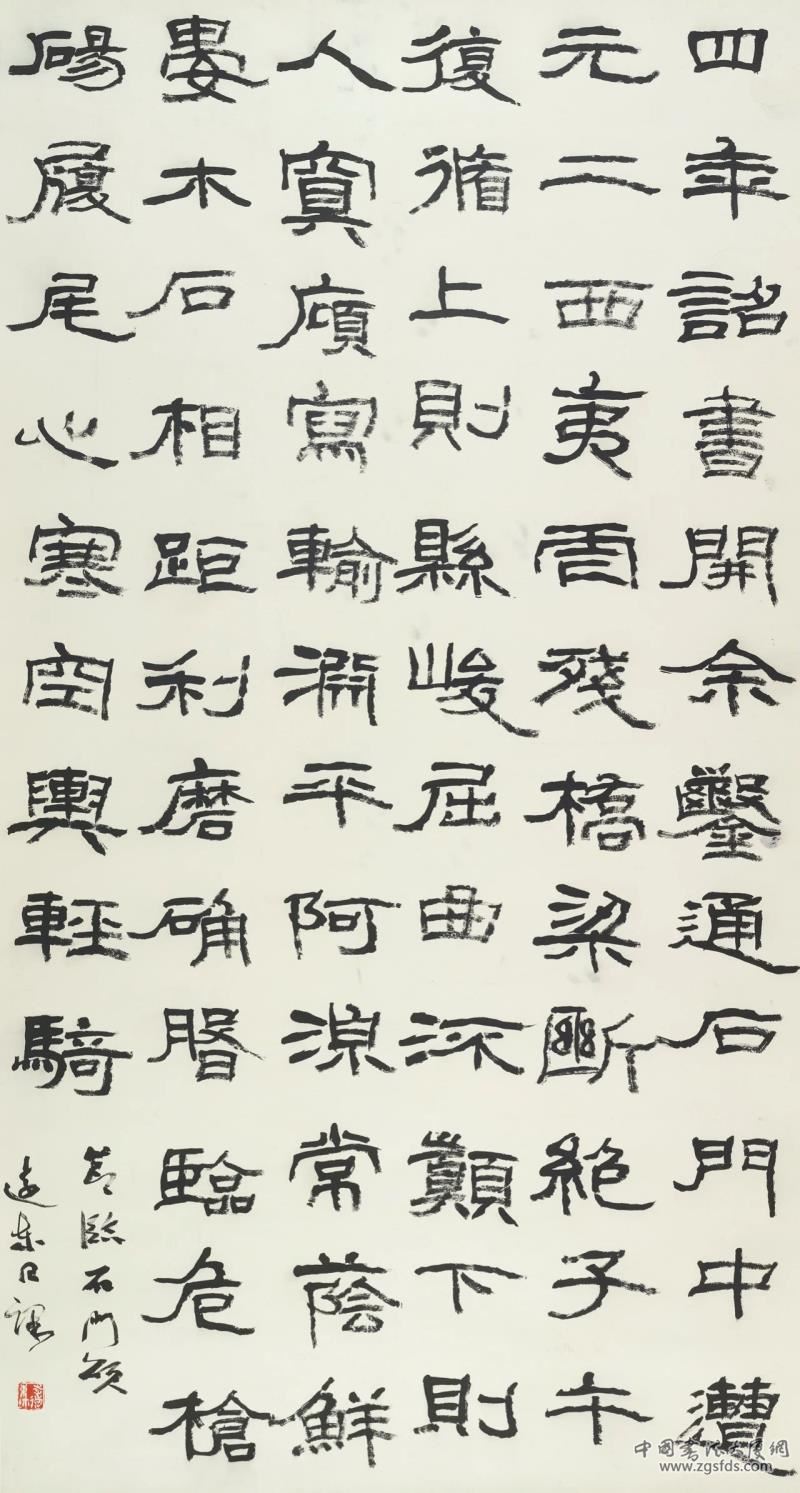 四年詔書開余鑿通石門中遭
元二西夷虐殘橋梁斷絕子午
復循上則縣峻屈曲流顛下則
人廎寫輸淵平阿涼常蔭鮮
晏木石相距利磨确臨危槍
碭履尾心寒空輿輕騎
節臨石門頌
中國書法大廈網
www.zgsfds.com